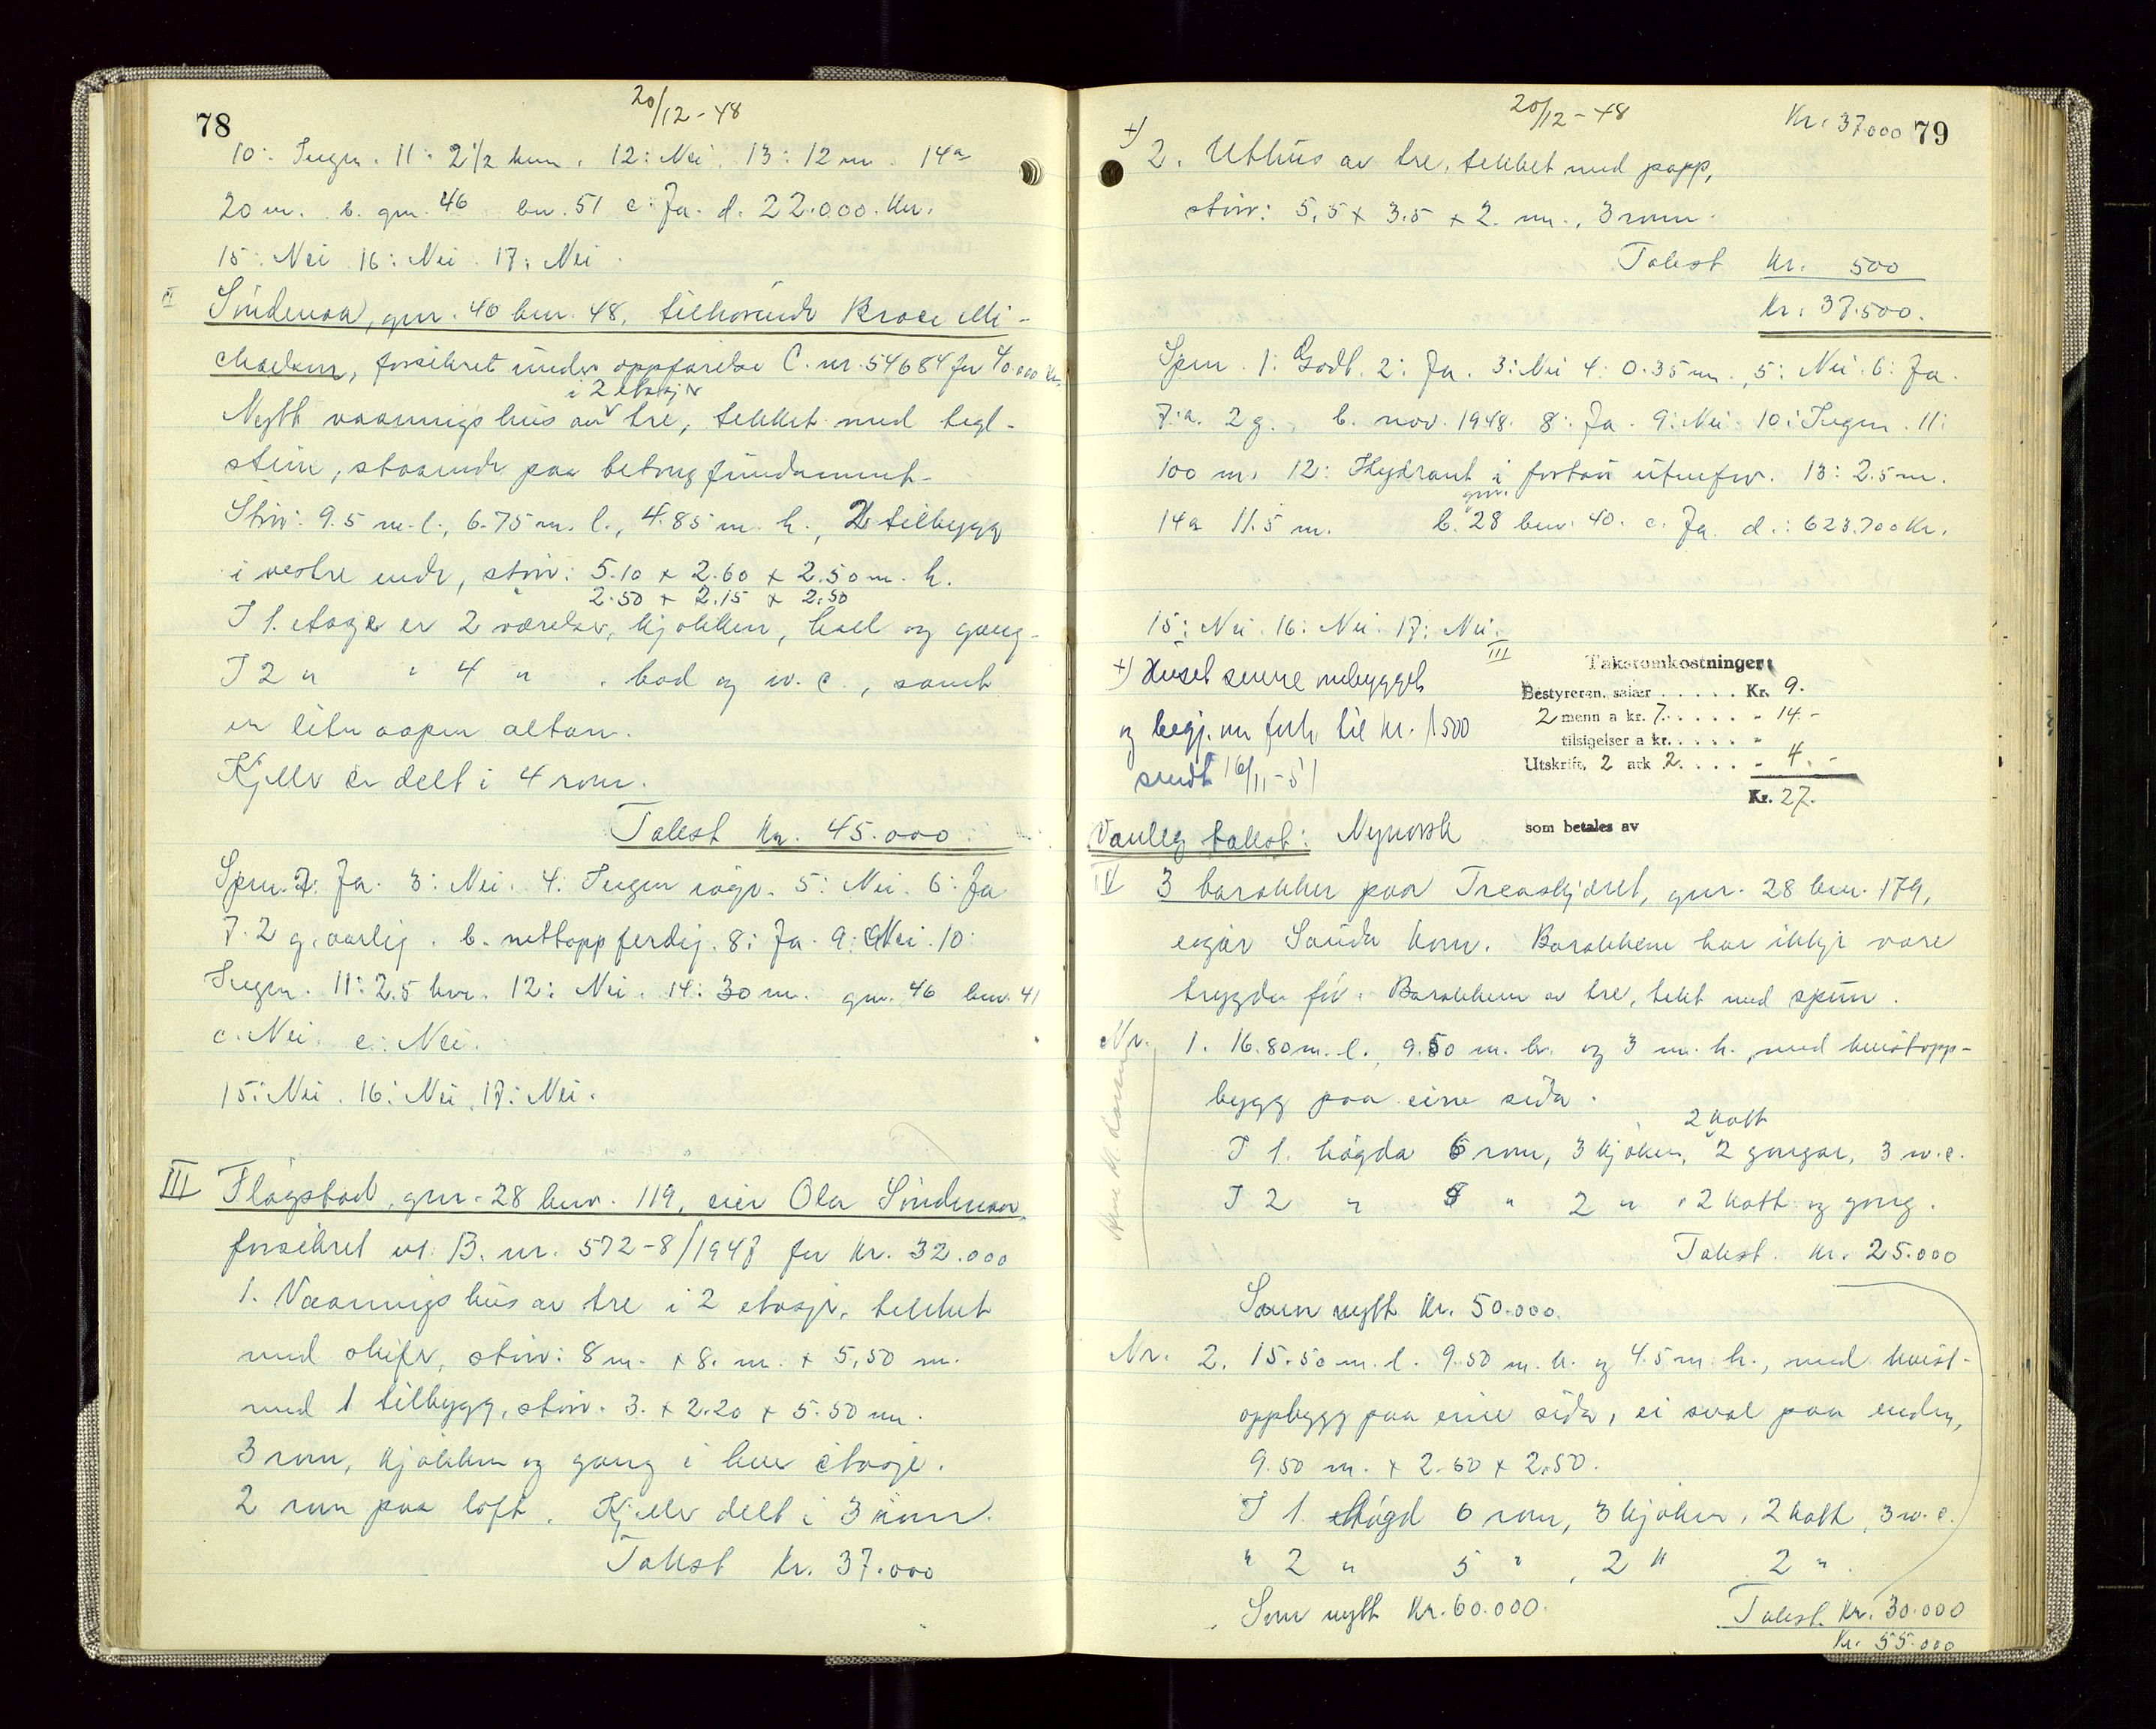 78
20/12-48
10: Ingen. 11: 2½ km. 12: Nei. 13: 12 m. 14a
20 m. b. gnr. 46 bnr. 51 c: Ja. d. 22.000. Kr.
15: Nei 16: Nei. 17: Nei.
II Sindenaa, gnr. 40 bnr. 48, tilhørende Kroce Mi-
chaelsen, forsikret under oppførelse C. nr. 54684 for 40.000 Kr.
i 2 etasjer
Nytt vaaningshus av tre, tekket med tegl-
stein, staaende paa betongfundament.
Størr: 9.5 m. l., 6.75 m. l., 4.85 m. h., 2 tilbygg
i vestre ende, størr: 5.10 x 2.60 x 2.50 m. h.
2.50 x 2.15 x 2.50
I 1. etage er 2 værelser, kjøkken, hall og gang.
I 2 " " 4 " , bad og w.c., samt
en liten aapen altan.
Kjeller er delt i 4 rom.
Takst Kr. 45.000.
Spm. 2: Ja. 3: Nei. 4. Ingen 5: Nei. 6: Ja
7. 2 g. aarlig. b. nettopp ferdig. 8: Ja. 9: Nei. 10:
Ingen. 11: 2.5 km. 12: Nei. 14: 30 m. gnr. 46 bnr. 41
c. Nei. e: Nei.
15: Nei. 16: Nei. 17: Nei.
III Fløgstad, gnr. 28 bnr. 119, eier Ola Sindenaa,
forsikret B. nr. 572-8/1947 for kr. 32.000
1. Vaaningshus av tre i 2 etasjer, tekket
med skifer, størr: 8 m. x 8. m. x 5,50 m.
med 1 tilbygg, størr. 3. x 2.20 x 5.50 m.
3 rom, kjøkken og gang i hver etasje.
2 rom paa loft. Kjeller delt i 3 rom.
Takst Kr. 37.000
20/12-48
Kr. 37.000 79
+) 2. Uthus av tre, tekket med papp,
størr: 5,5 x 3.5 x 2. m., 3 rom.
Takst Kr. 500
Kr. 37.500.
Spm. 1: Godt. 2: Ja. 3: Nei 4: 0.35 m., 5: Nei. 6: Ja.
7: a. 2 g. b. nov. 1948. 8: Ja. 9: Nei. 10: Ingen. 11:
100 m. 12: Hydrant i fortau utenfor. 13: 2.5 m.
gnr.
14a 11.5 m. b. 28 bnr. 40. c. Ja d.: 623.700 Kr.
15: Nei. 16: Nei. 17: Nei.
+) Huset senere ombygget
og begj. om forh. til kr. 1500
sendt 16/11-51
III
Takstomkostninger:
Bestyreren, salær . . . . . Kr. 9.
2 menn a kr. 7. . . . . . " 14.-
tilsigelser a kr. . . . . . "
Utskrift, 2 ark 2. . . . . " 4.-
Kr. 27.
som betales av
Vanleg takst: Nynorsk
IV 3 barakker paa Treaskjæret, gnr. 28 bnr. 179,
eigar Sauda kom. Barakkene har ikkje vore
trygda før. Barakkene av tre, tekt med spon.
Nr. 1. 16.80 m. l., 9.50 m. br. og 3 m. h., med kvistopp-
bygg paa eine sida.
2 kott
I 1. høgda 6 rom, 3 kjøken, 2 gangar, 3 w.c.
I 2 " 5 " 2 " , 2 kott og gong.
Takst. kr. 25.000
Som nytt Kr. 50.000.
Nr. 2. 15.50 m. l. 9.50 m. br. og 4.5 m. h., med kvist-
oppbygg paa eine sida, ei sval paa enden,
9.50 m. x 2.60 x 2.50.
I 1. høgd 6 rom, 3 kjøken, 2 kott, 3 w.c.
" 2 " 5 " , 2 " 2 ".
Som nytt Kr. 60.000.
Takst. Kr. 30.000
Kr. 55.000